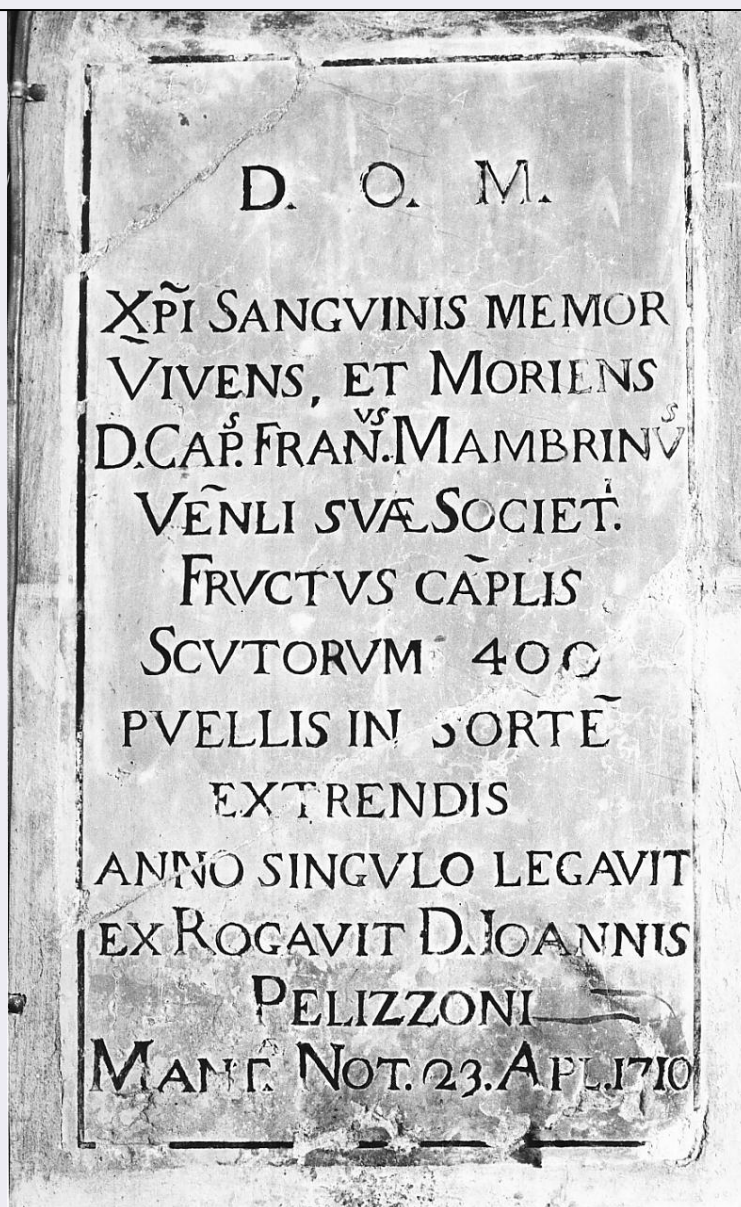 D. O. M.
XP̃I SANGVINIS MEMOR
ṼIVENS, ET MORIENS
D. CAP.ˢ FRAN.ᵛˢ MAMBRINVˢ
VEÑLI SVÆ SOCIET.
FRVCTVS CAP̃LIS
SCVTORVM 400
PVELLIS IN SORTẼ
EXTRENDIS
ANNO SINGVLO LEGAVIT
EX ROGAVIT D. IOANNIS
PELIZZONI
MANT. NOT. 23. APL. 1710